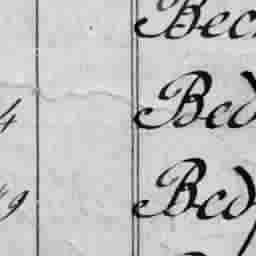 Bec
4 Bed
49 Bed